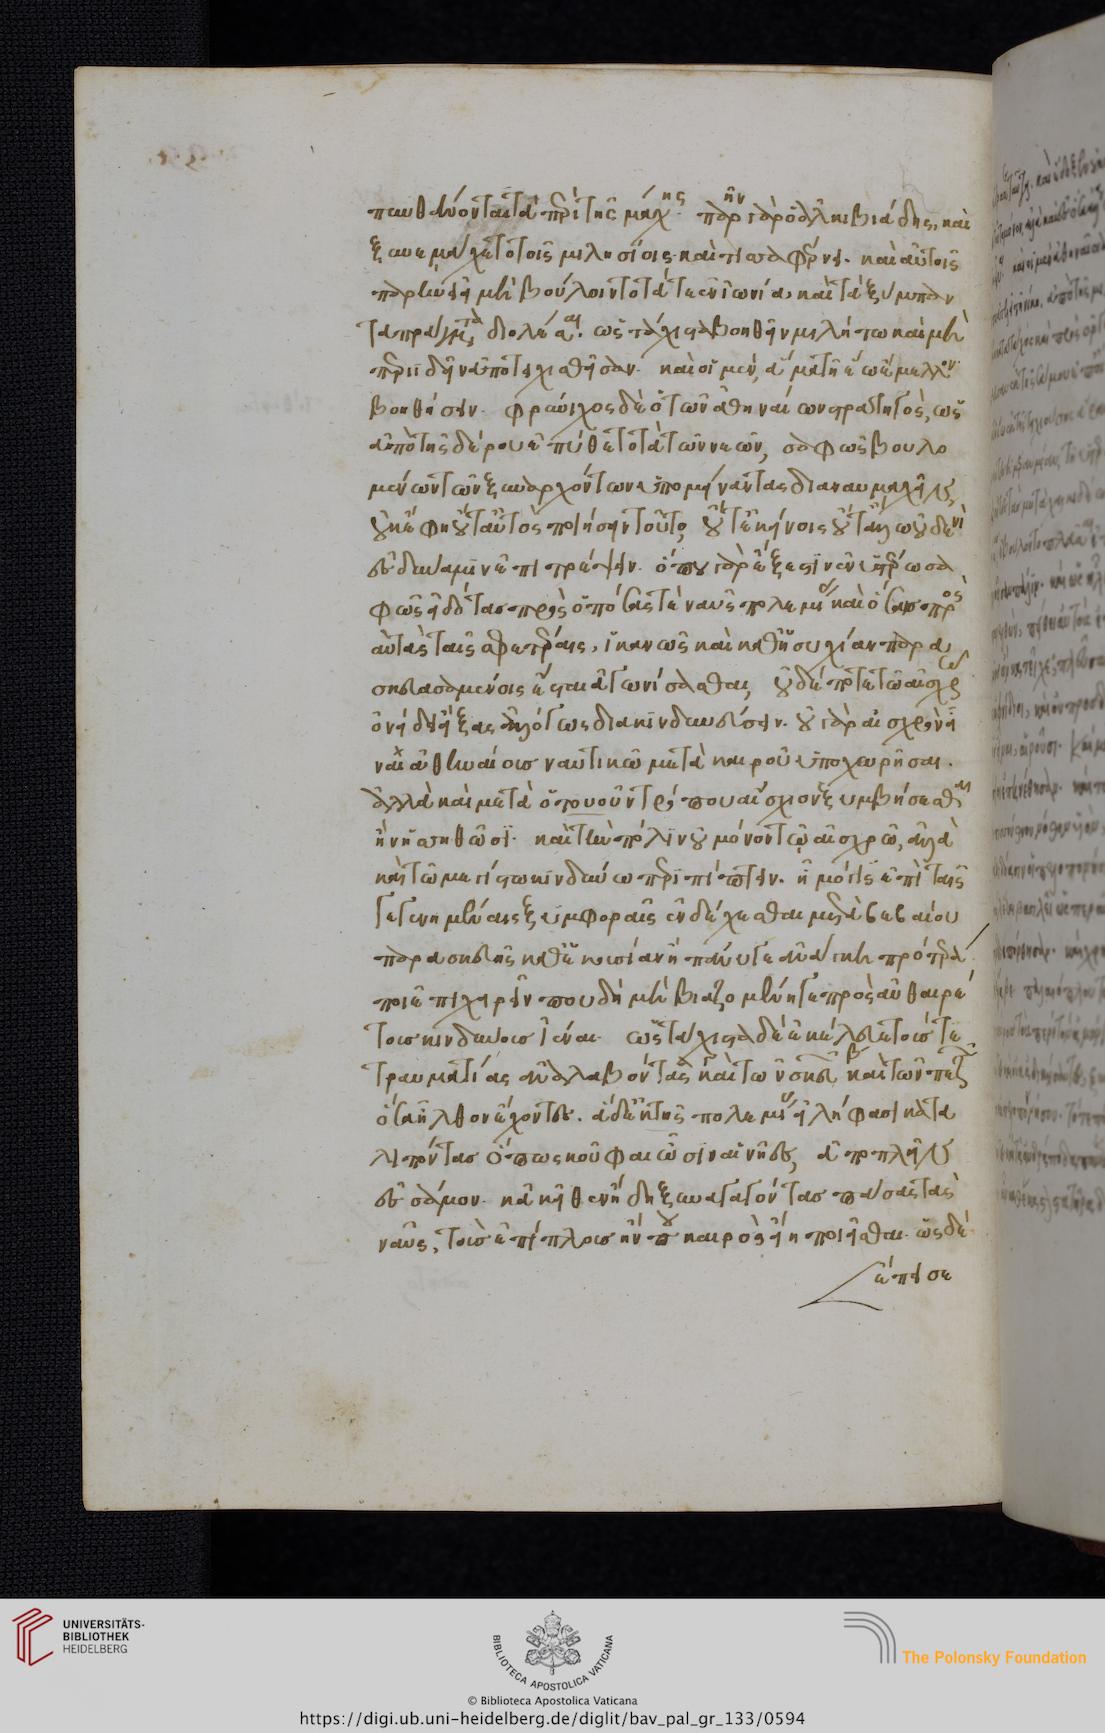 πυνθάνονται τὰ περὶ τῆς μάχης· παρῆν γὰρ ὁ ἀλκιβιάδης, καὶ
ξυνεμάχετο τοῖς μιλησίοις καὶ τισαφέρνει. καὶ αὐτοῖς
παρήνει εἰ μὴ βούλοιντο τά τε ἐν ἰωνία, καὶ τὰ ξύμπαν
τα πράγματα διολέσαι· ὡς τάχιστα βοηθεῖν μιλήτω καὶ μὴ
περιιδεῖν ἀποτειχισθεῖσαν. καὶ οἱ μὲν, ἅμα τῆ ἕω ἔμελλον
βοηθήσειν· φρύνιχος δὲ ὁ τῶν ἀθηναίων στρατηγὸς, ὡς
ἀπὸ τῆς δέρου ἐπύθετο τὰ τῶν νεῶν, σαφῶς βουλο
μένων τῶν ξυναρχόντων ὑπομείναντας διαναυμαχεῖν,
οὐκ ἔφη οὔτ' αὐτὸς ποιήσειν τοῦτο, οὔτ' ἐκείνοις οὔτ' ἄλλω οὐδενὶ
ἐς δύναμιν ἐπιτρέψειν. ὅπου γὰρ ἔξεστιν ἐν ὑστέρω σα
φῶς εἰδότας πρὸς ὁπόσας τὲ ναῦς πολεμίας καὶ ὅσαις πρὸς
αὐτὰς ταῖς σφετέραις, ἱκανῶς καὶ καθ' ἡσυχίαν παρα
σκευασαμένοις ἔσται ἀγωνίσασθαι, οὐδέποτε τῶ αἰσχρῶ
ὀνείδει εἴξας ἀλόγως διακινδυνεύσειν. οὐ γὰρ αἰσχρὸν εἶ
ναι ἀθηναίοις ναυτικῶ μετὰ καιροῦ ὑποχωρῆσαι.
ἀλλὰ καὶ μετὰ ὅτουοῦν τρόπου αἴσχιον ξυμβήσεσθαι
ἢν ἡσσηθῶσι· καὶ τὴν πόλιν οὐ μόνον τῶ αἰσχρῶ, ἀλλὰ
καὶ τῶ μεγίστω κινδύνω περιπίπτειν. ἧ μόλις ἐπὶ ταῖς
γεγενημέναις ξυμφοραῖς ἐνδέχεσθαι μετὰ βεβαίου
παρασκευῆς καθ' ἑκουσίαν ἢ πάνυ γε ἀνάγκη προτέρα
ποι ἐπιχειρεῖν που δὴ μὴ βιαζομένη γε πρὸς αὐθαιρέ
τους κινδύνους ἰέναι. ὡς τάχιστα δὲ ἐκέλευε τούς τε
τραυματίας ἀναλαβόντας καὶ τῶν σκευῶν καὶ τὸν πεζὸν
ὅσα ἦλθον ἔχοντες. ἃ δ' ἐκ τῆς πολεμίας εἰλήφασι κατα
λιπόντας ὅπως κοῦφαι ὦσιν αἱ νῆες, ἀποπλεῖν
ἐς σάμον. κἀκεῖθεν ἤδη ξυναγαγόντας πάσας τὰς
ναῦς, τοὺς ἐπίπλους ἤν που καιρὸς ἦ ποιεῖσθαι. ὡς δὲ
ἔπεισε
UNIVERSITÄTS-
BIBLIOTHEK
HEIDELBERG
BIBLIOTECA APOSTOLICA VATICANA
The Polonsky Foundation
© Biblioteca Apostolica Vaticana
https://digi.ub.uni-heidelberg.de/diglit/bav_pal_gr_133/0594